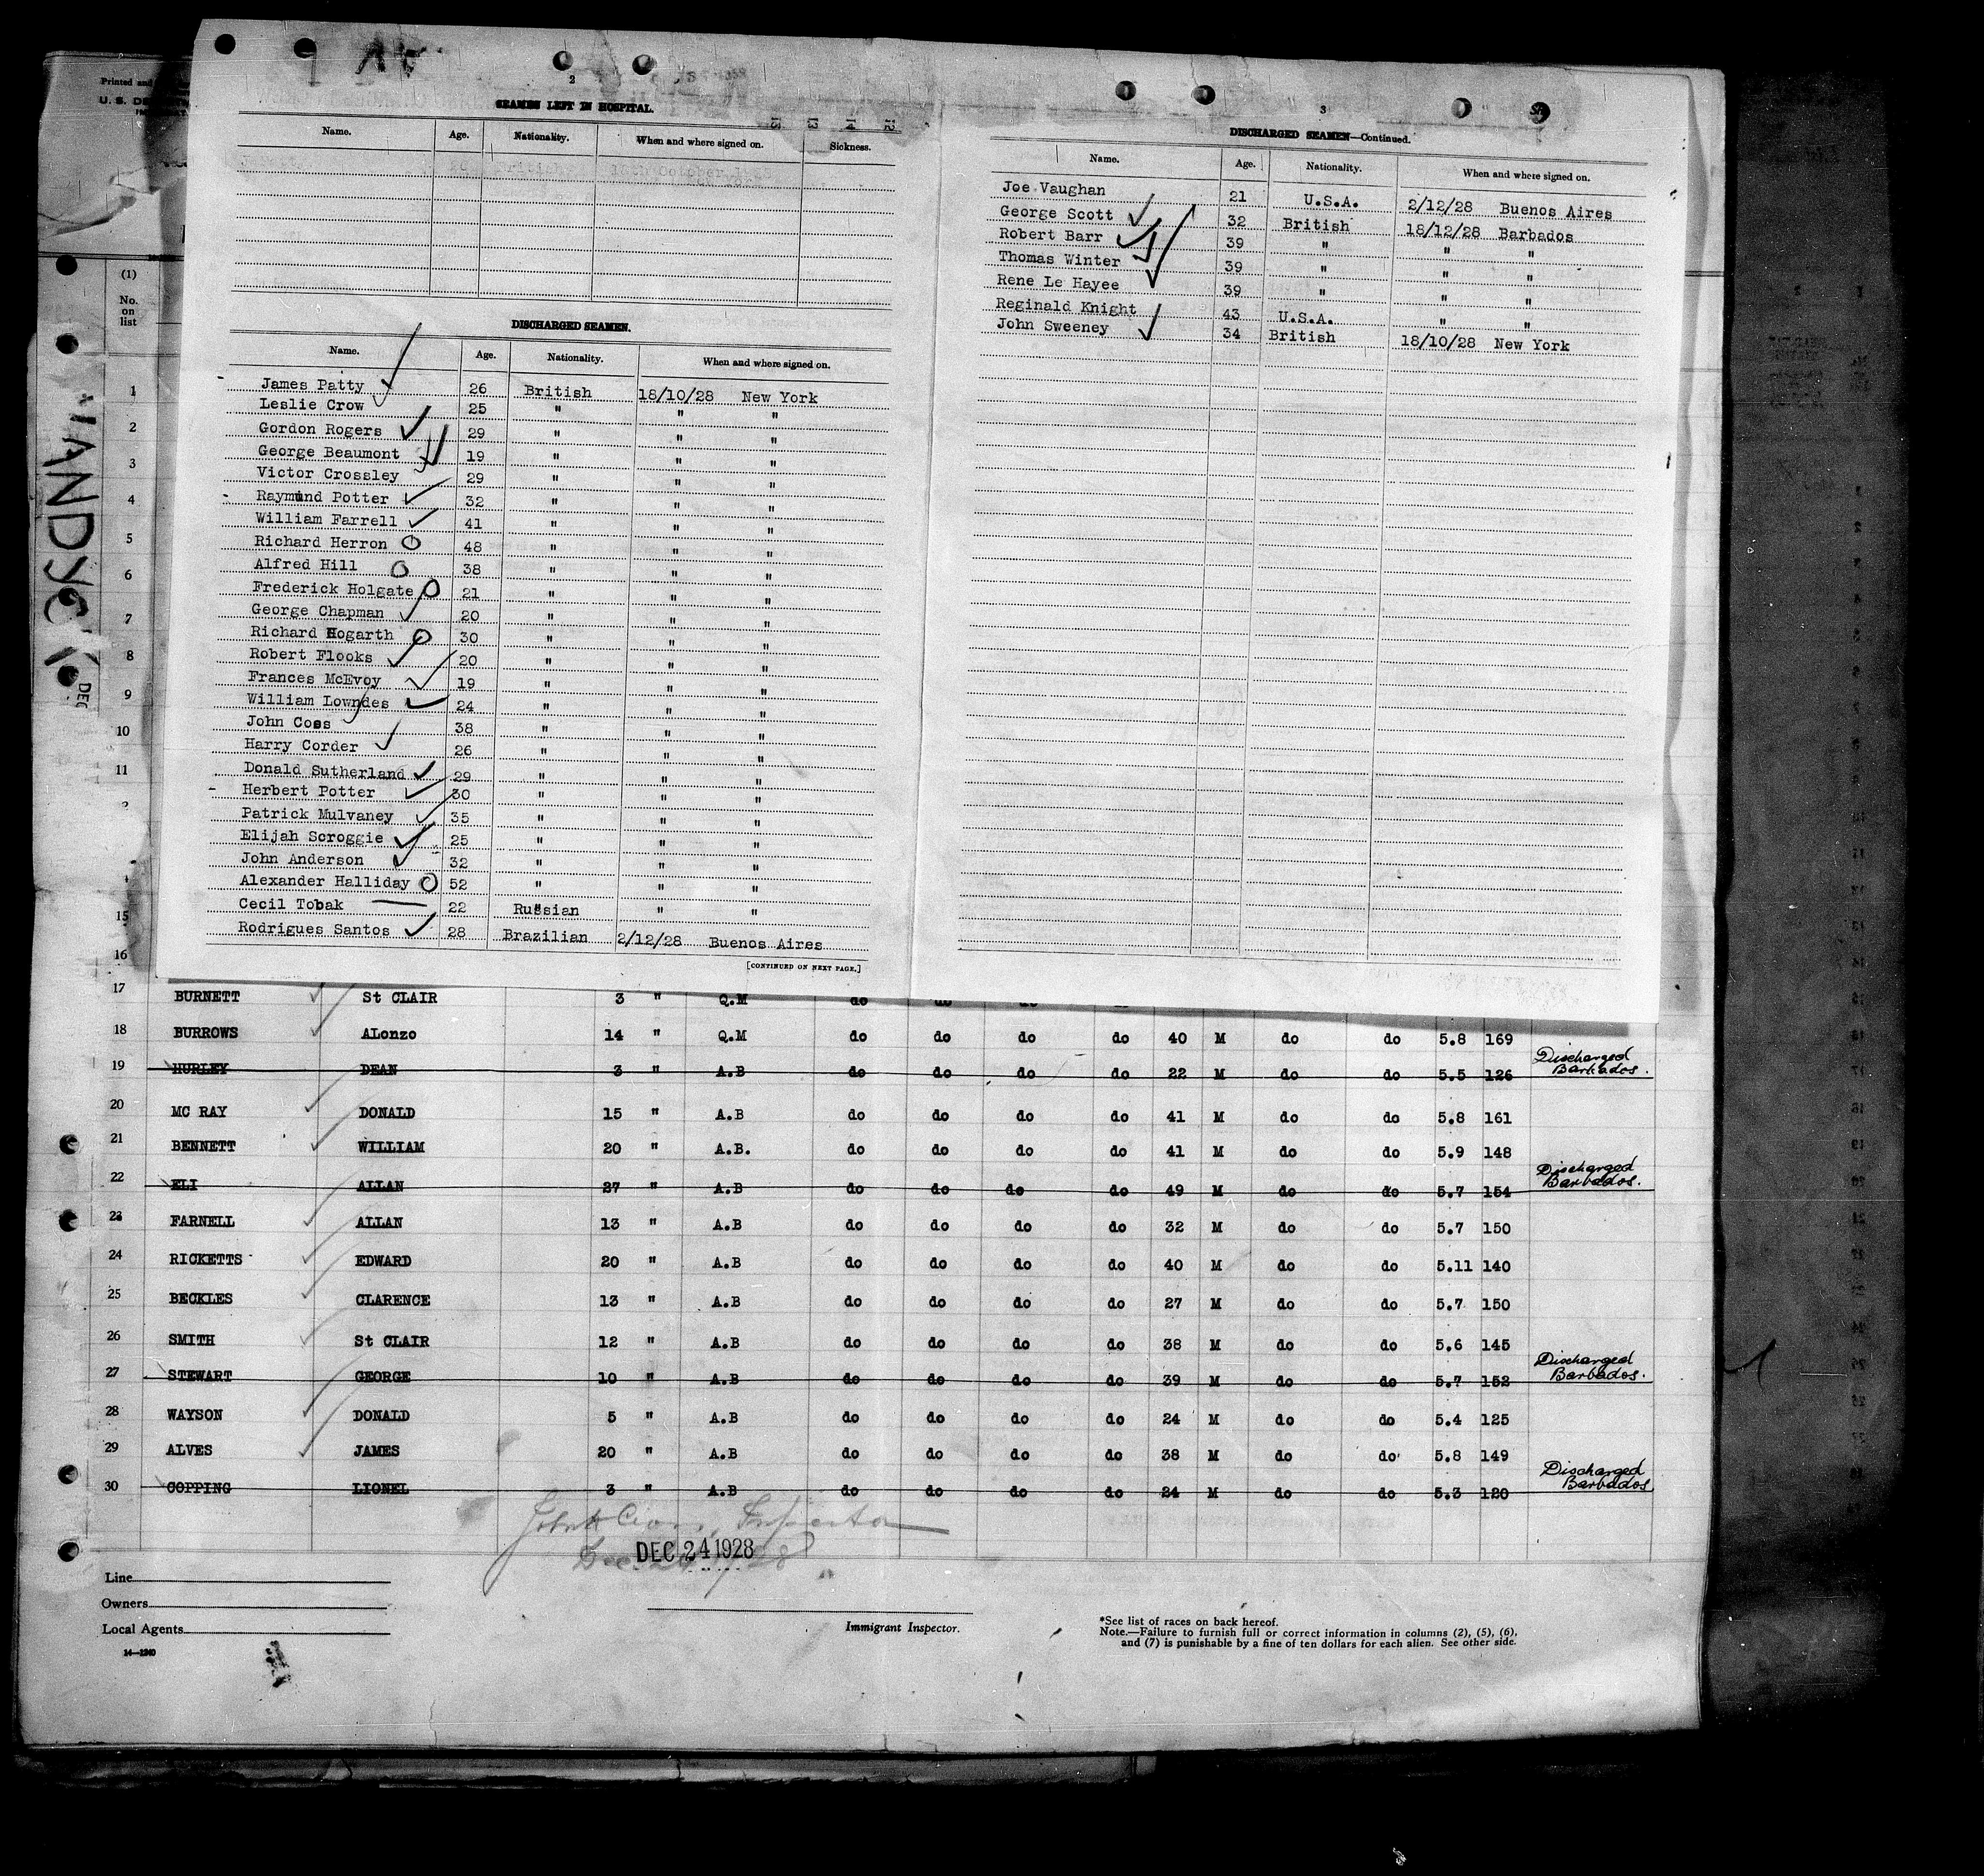 Printed and
U. S. DE
2
SEAMEN LEFT IN HOSPITAL.
Name. Age. Nationality. When and where signed on. Sickness.
DISCHARGED SEAMEN.
Name. Age. Nationality. When and where signed on.
James Patty 26 British 18/10/28 New York
Leslie Crow 25 " " "
Gordon Rogers 29 " " "
George Beaumont 19 " " "
Victor Crossley 29 " " "
Raymund Potter 32 " " "
William Farrell 41 " " "
Richard Herron 48 " " "
Alfred Hill 38 " " "
Frederick Holgate 21 " " "
George Chapman 20 " " "
Richard Hogarth 30 " " "
Robert Flooks 20 " " "
Frances McEvoy 19 " " "
William Lowndes 24 " " "
John Coss 38 " " "
Harry Corder 26 " " "
Donald Sutherland 29 " " "
Herbert Potter 30 " " "
Patrick Mulvaney 35 " " "
Elijah Scroggie 25 " " "
John Anderson 32 " " "
Alexander Halliday 52 " " "
Cecil Tobak 22 Russian " "
Rodrigues Santos 28 Brazilian 2/12/28 Buenos Aires
[CONTINUED ON NEXT PAGE.]
3
DISCHARGED SEAMEN—Continued.
Name. Age. Nationality. When and where signed on.
Joe Vaughan 21 U.S.A. 2/12/28 Buenos Aires
George Scott 32 British 18/12/28 Barbados
Robert Barr 39 " " "
Thomas Winter 39 " " "
Rene Le Hayee 39 " " "
Reginald Knight 43 U.S.A. " "
John Sweeney 34 British 18/10/28 New York
(1)
No.
on
list
1
2
3
4
5
6
7
8
9
10
11
15
16
DEC
17 BURNETT St CLAIR 3 " Q.M do do
18 BURROWS ALonzo 14 " Q.M do do do do 40 M do do 5.8 169
19 HURLEY DEAN 3 " A.B do do do do 22 M do do 5.5 126 Discharged Barbados.
20 MC RAY DONALD 15 " A.B do do do do 41 M do do 5.8 161
21 BENNETT WILLIAM 20 " A.B. do do do do 41 M do do 5.9 148
22 ELI ALLAN 27 " A.B do do do do 49 M do do 5.7 154 Discharged Barbados.
23 FARNELL ALLAN 13 " A.B do do do do 32 M do do 5.7 150
24 RICKETTS EDWARD 20 " A.B do do do do 40 M do do 5.11 140
25 BECKLES CLARENCE 13 " A.B do do do do 27 M do do 5.7 150
26 SMITH St CLAIR 12 " A.B do do do do 38 M do do 5.6 145
27 STEWART GEORGE 10 " A.B do do do do 39 M do do 5.7 152 Discharged Barbados.
28 WAYSON DONALD 5 " A.B do do do do 24 M do do 5.4 125
29 ALVES JAMES 20 " A.B do do do do 38 M do do 5.8 149
30 COPPING LIONEL 3 " A.B do do do do 24 M do do 5.3 120 Discharged Barbados
DEC 24 1928
Line
Owners
Local Agents
14—1240
Immigrant Inspector.
*See list of races on back hereof.
Note.—Failure to furnish full or correct information in columns (2), (5), (6),
and (7) is punishable by a fine of ten dollars for each alien. See other side.